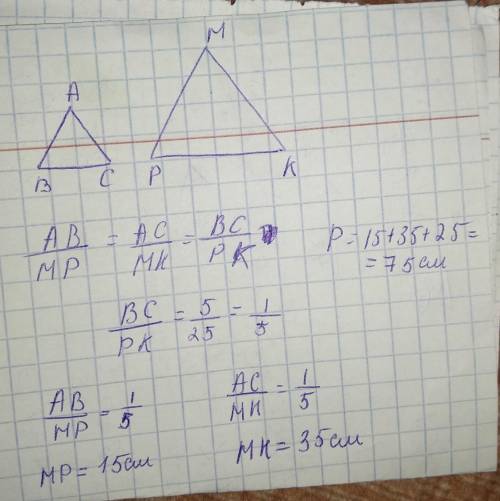 A
B C
M
P K
AB/MP = AC/MK = BC/PK
P = 15+35+25 =
= 75см
BC/PK = 5/25 = 1/5
AB/MP = 1/5
MP = 15см
AC/MK = 1/5
MK = 35см